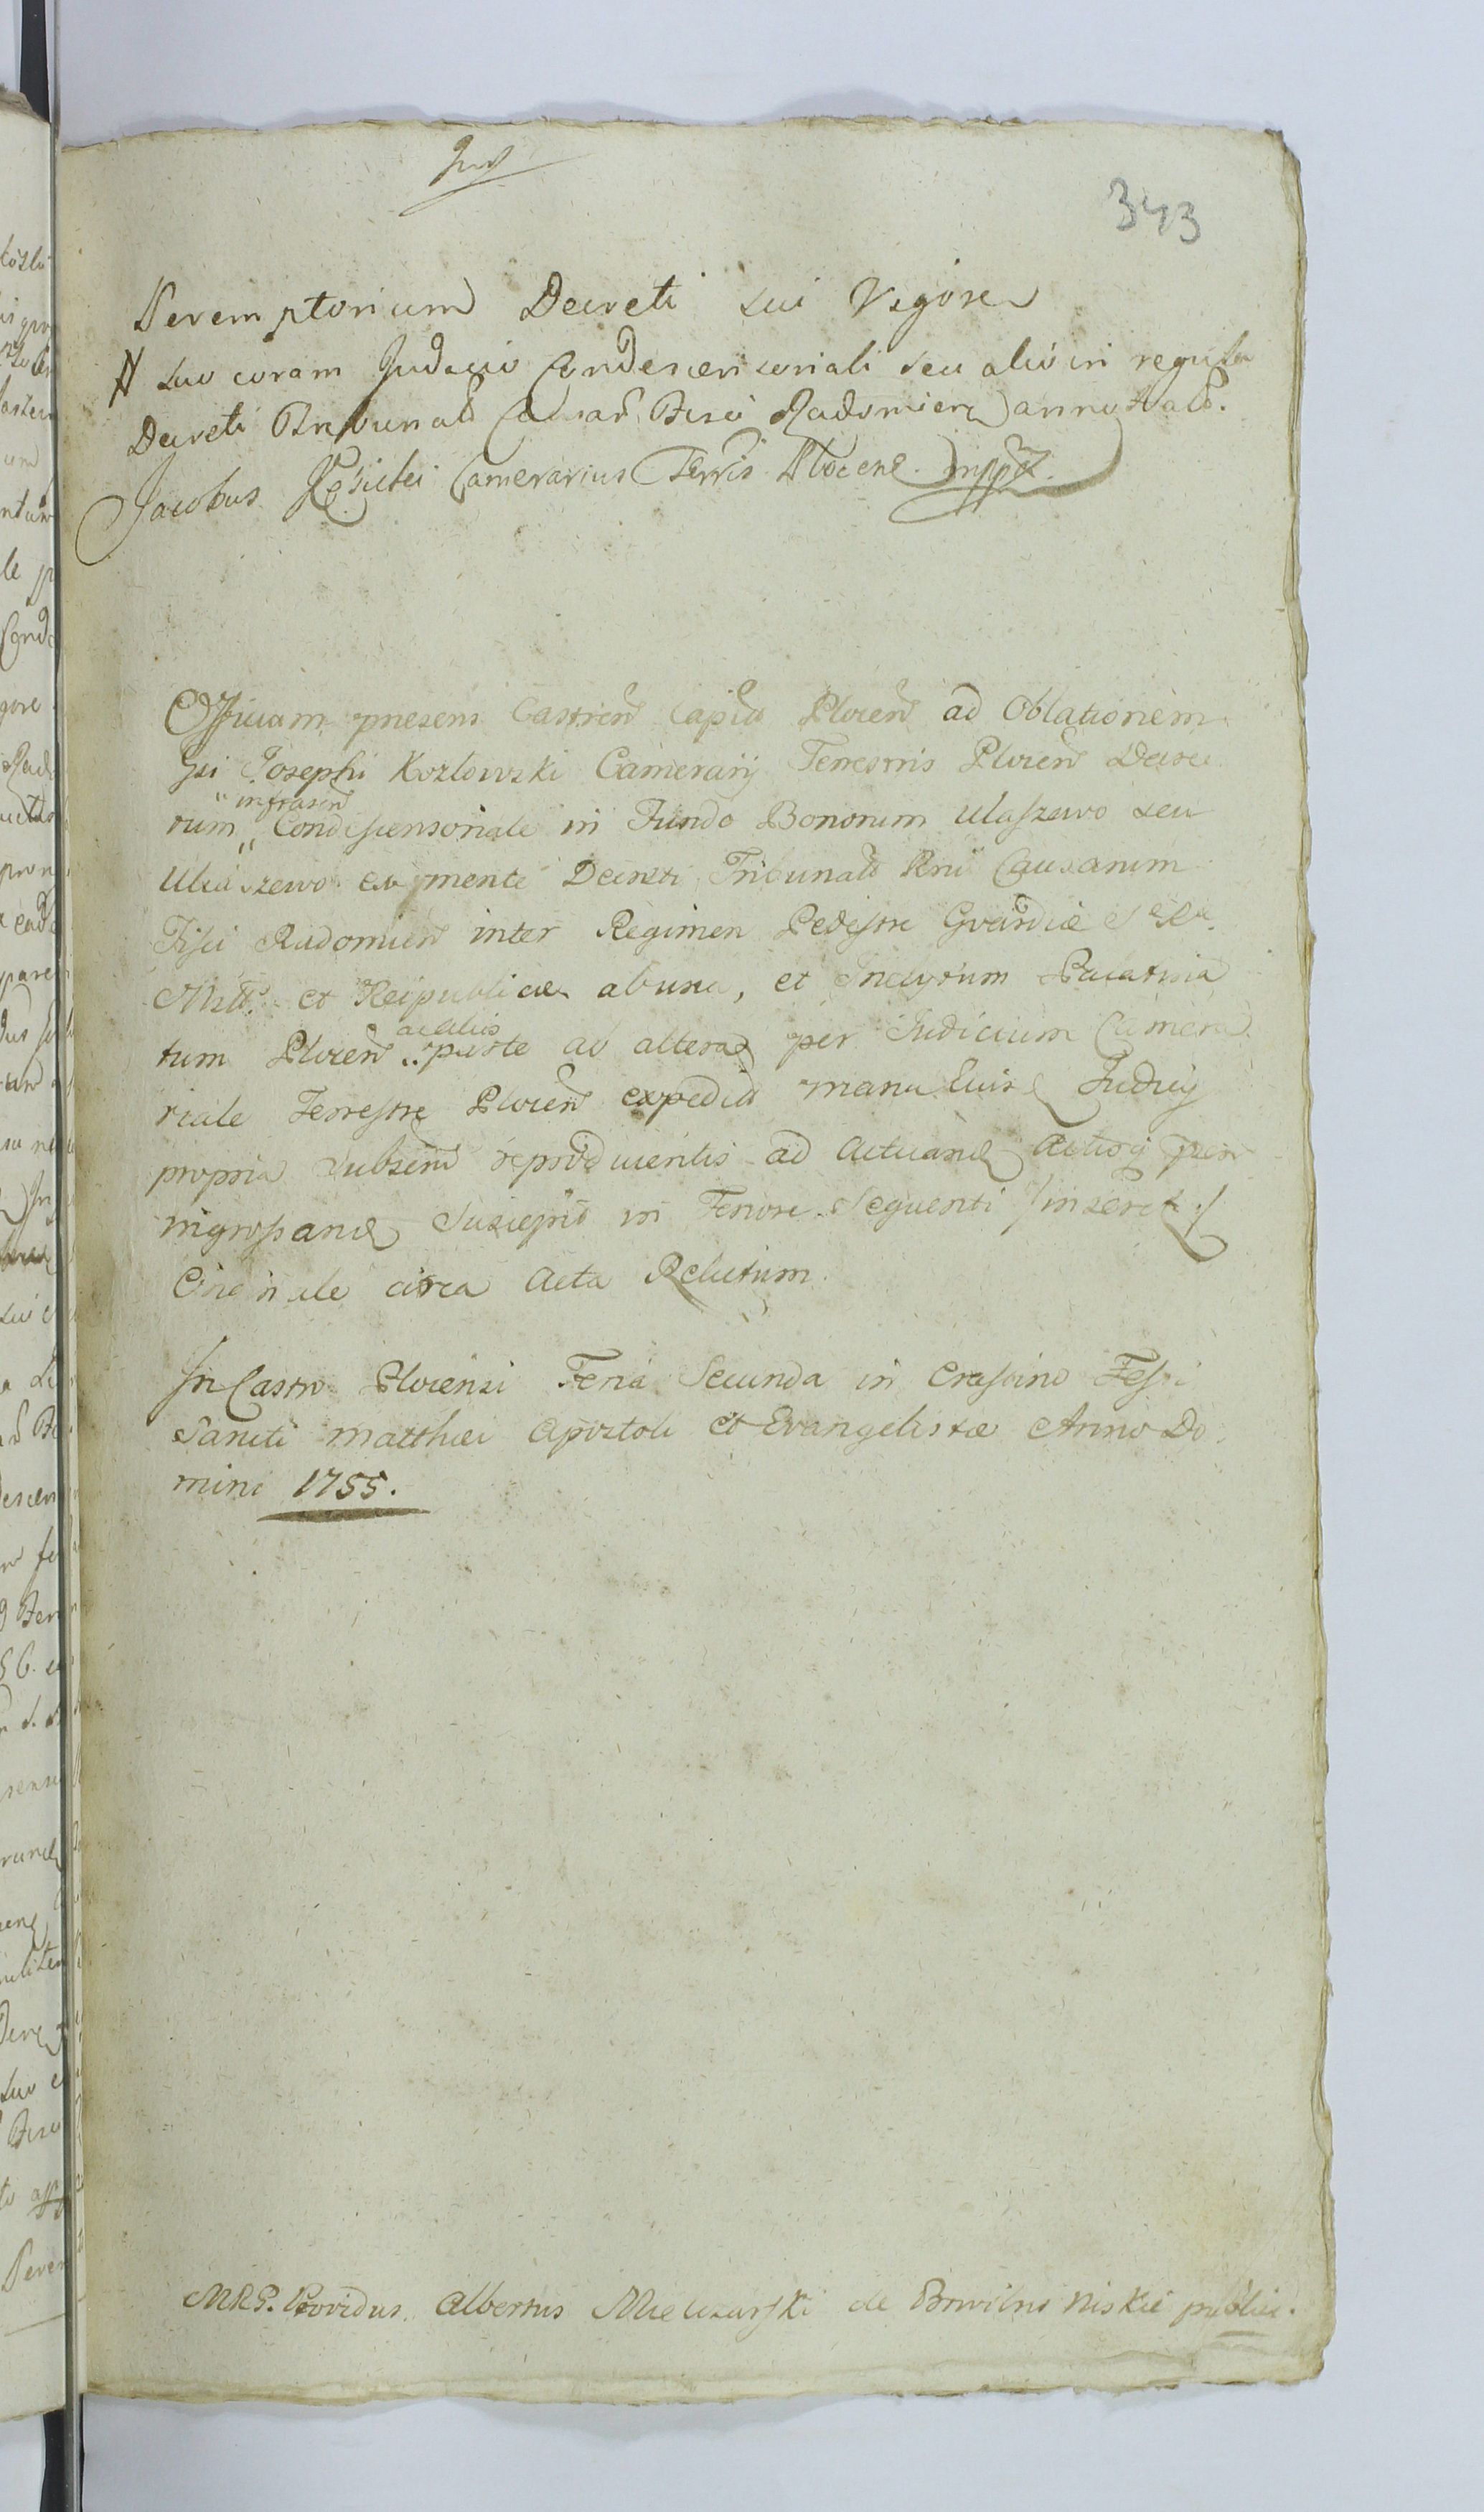 343
Peremptorium Decreti sui Vigore
suo coram Judicio Condescensoriali seu alio in regula
Decreti Tribunald Causar Fisci Radomien annotald.
Jacobus Camerarius Terris Plocene. mppa.
Officium presens Castren Capita Plocen ad Oblationem
Gsi Josephi Kozlowski Camerarij Terrestris Plocen Decre
infrascr
tum Condescensoriale in Fundo Bonorum Ulaszewo seu
Uliaszewo ex mente Decreti Tribunald Rni Causarum
Fisci Radomien inter Regimen Pedestre Gvardiæ
Mtt. et Reipublicæ ab una, et Inclytum Palatina
ac aliis
tum Plocen parte ab altera per Judicium Camera
riale Terrestre Plocen expedit manu Ejusd Judicij
propria Subscrid reproducentis ad Actuand Actisq pnr
ingrossand Suscepit in Tenore Sequenti /inseret:/
Originale circa Acta Relictum.
In Castro Plocensi Feria Secunda in Crastino Festi
Sancti Matthæi Apostoli et Evangelistæ Anno Do
mini 1755.
MRG. Providus Albertus Mieczarski de Browilno niskie public.